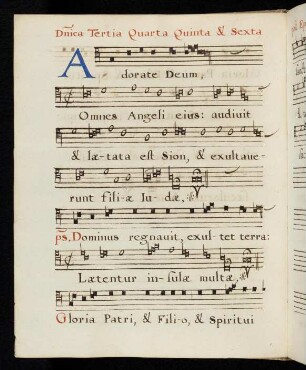 Dnica Tertia Quarta Quinta & Sexta
Adorate Deum,
Omnes Angeli eius: audiuit
& læ-tata est Sion, & exultaue-
runt fili-æ Iu-dæ,
ps. Dominus regnauit, exul-tet terra:
Lætentur in-sulæ multæ,
Gloria Patri, & Fili-o, & Spiritui